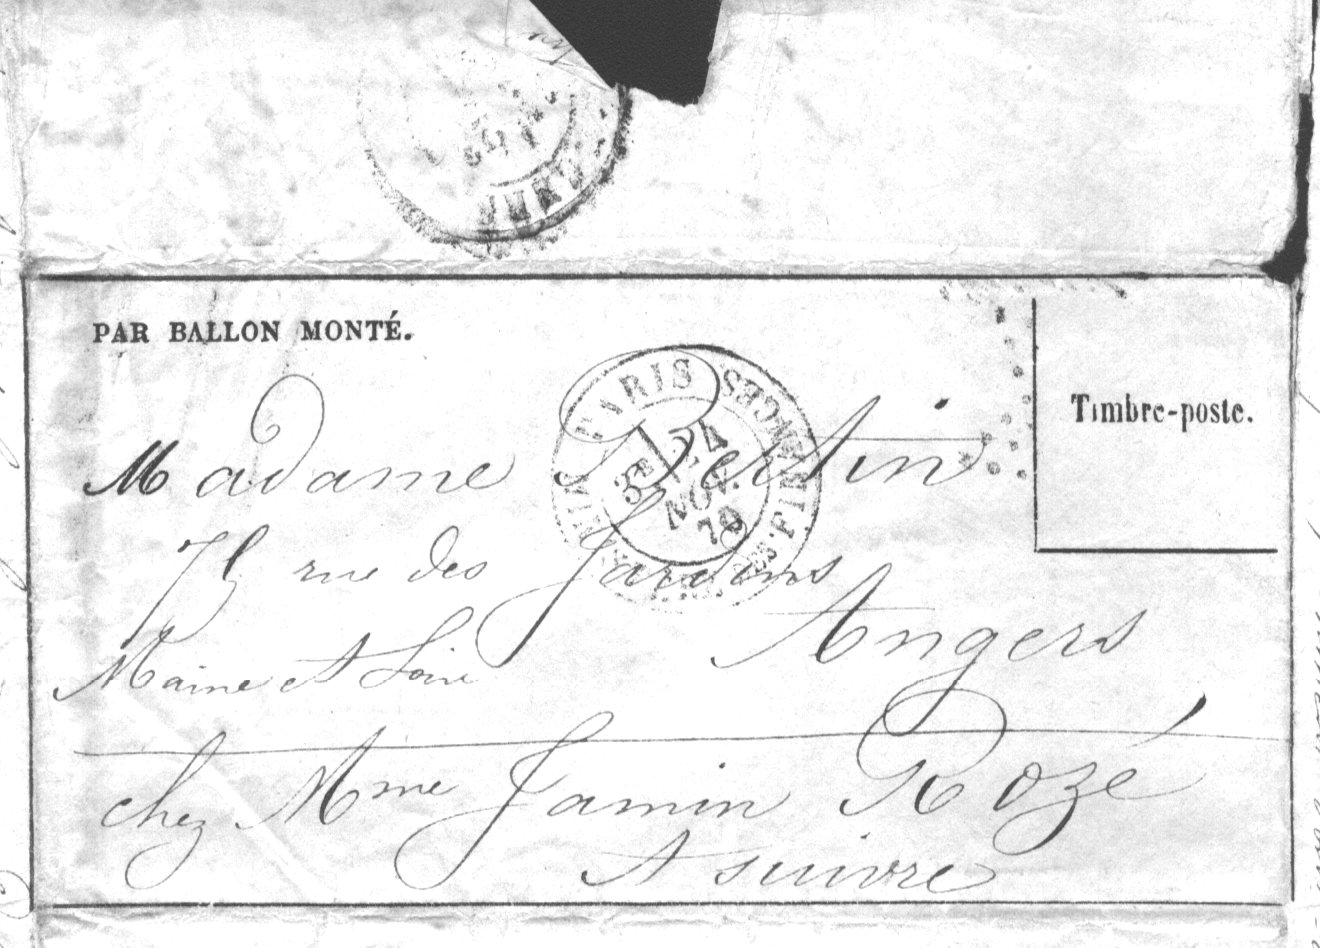 PAR BALLON MONTÉ.
Timbre-poste.
PARIS
3E
24
NOV.
70
Madame Bertin
rue des Jardins
Angers
Maine et Loire
chez Mme Jamin Rozé
A suivre